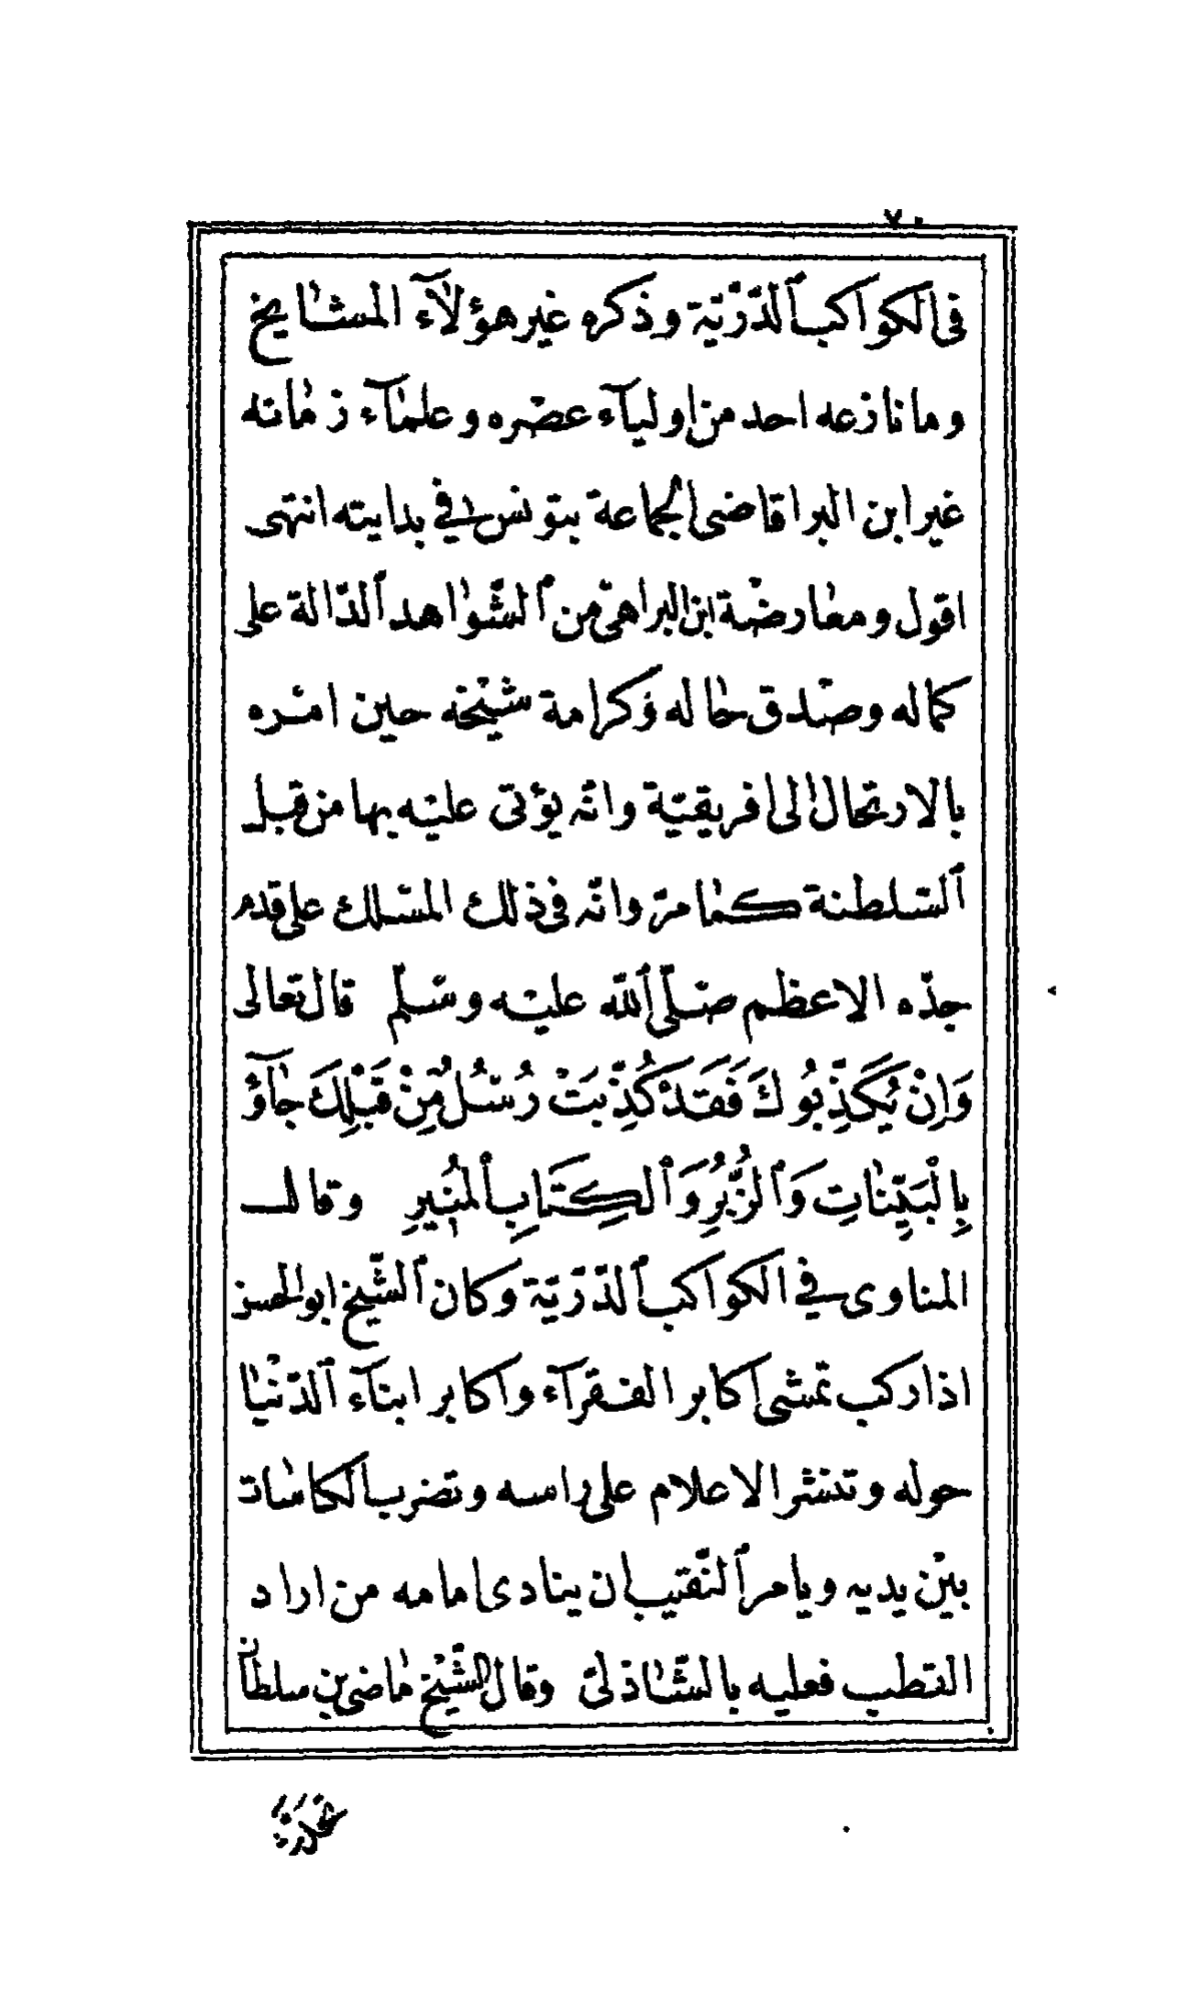 ٧٠
فى الكواكب الدّرّيّة وذكره غير هؤلآء المشايخ
وما نازعه احد من اوليآء عصره وعلمآء زمانه
غير ابن البرا قاضى الجماعة بتونس فى بدايته انتهى
اقول ومعارضة ابن البرا هى من الشّواهد الدّالة على
كماله وصدق حاله وكرامة شيخه حين امره
بالارتحال الى افريقيّة وانّه يؤتى عليه بها من قبل
السّلطنة كما مرّ وانّه فى ذلك المسلك على قدم
جدّه الاعظم صلّى اللّه عليه وسلّم قال تعالى
وَاِنْ يُكَذِّبُوكَ فَقَدْ كُذِّبَتْ رُسُلٌ مِنْ قَبْلِكَ جَآؤُ
بِالْبَيِّنَاتِ وَالزُّبُرِ وَالْكِتَابِ الْمُنِيرِ وقال
المناوى فى الكواكب الدّرّيّة وكان الشّيخ ابو الحسن
اذا ركب تمشى اكابر الفقرآء واكابر ابنآء الدّنيا
حوله وتنشر الاعلام على راسه وتضرب الكاسات
بين يديه ويامر النّقيب ان ينادى امامه من اراد
القطب فعليه بالشّاذلىّ وقال الشّيخ ماضى بن سلطان